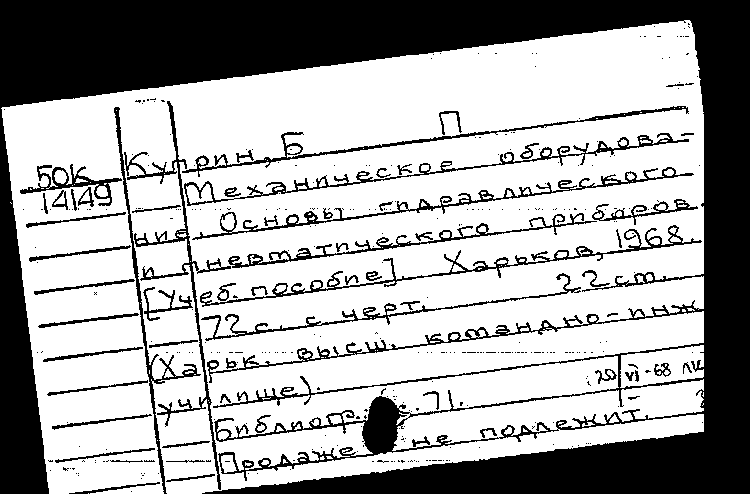 П
50К Куприн, Б
14149 Механическое оборудова-
ние. Основы гидравлического
и пневматического приборов.
[Учеб. пособие]. Харьков, 1968.
72 с. с черт. 22 см.
(Харьк. высш. командно-инж
училище).
Библиогр. с. 71. 20 VI-68
Продаже не подлежит.